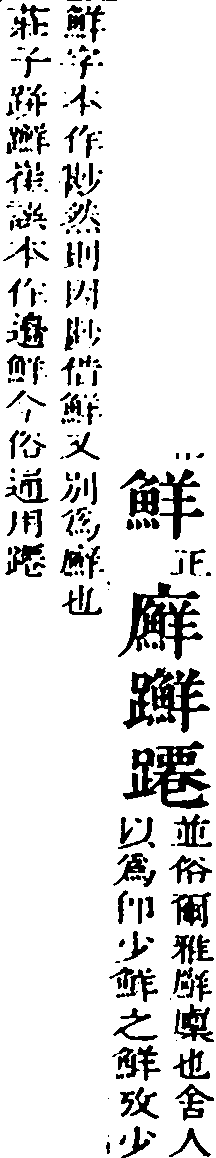 鮮
正
廯𨇤蹮
並俗爾雅廯廩也舍人
以爲卽少鮮之鮮攷少
鮮字本作尟然則因尟借鮮又別爲廯也
莊子跰𨇤崔譔本作邊鮮今俗通用蹮